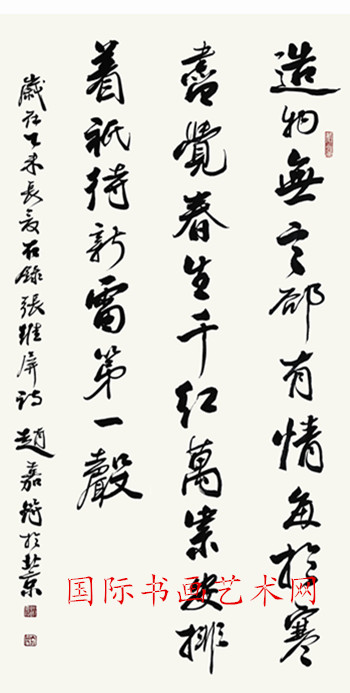 造物無言卻有情每於寒
盡覺春生千紅萬紫安排
着祇待新雷第一聲
歲在乙未長夏右錄張維屏詩 趙嘉於北京
国际书画艺术网